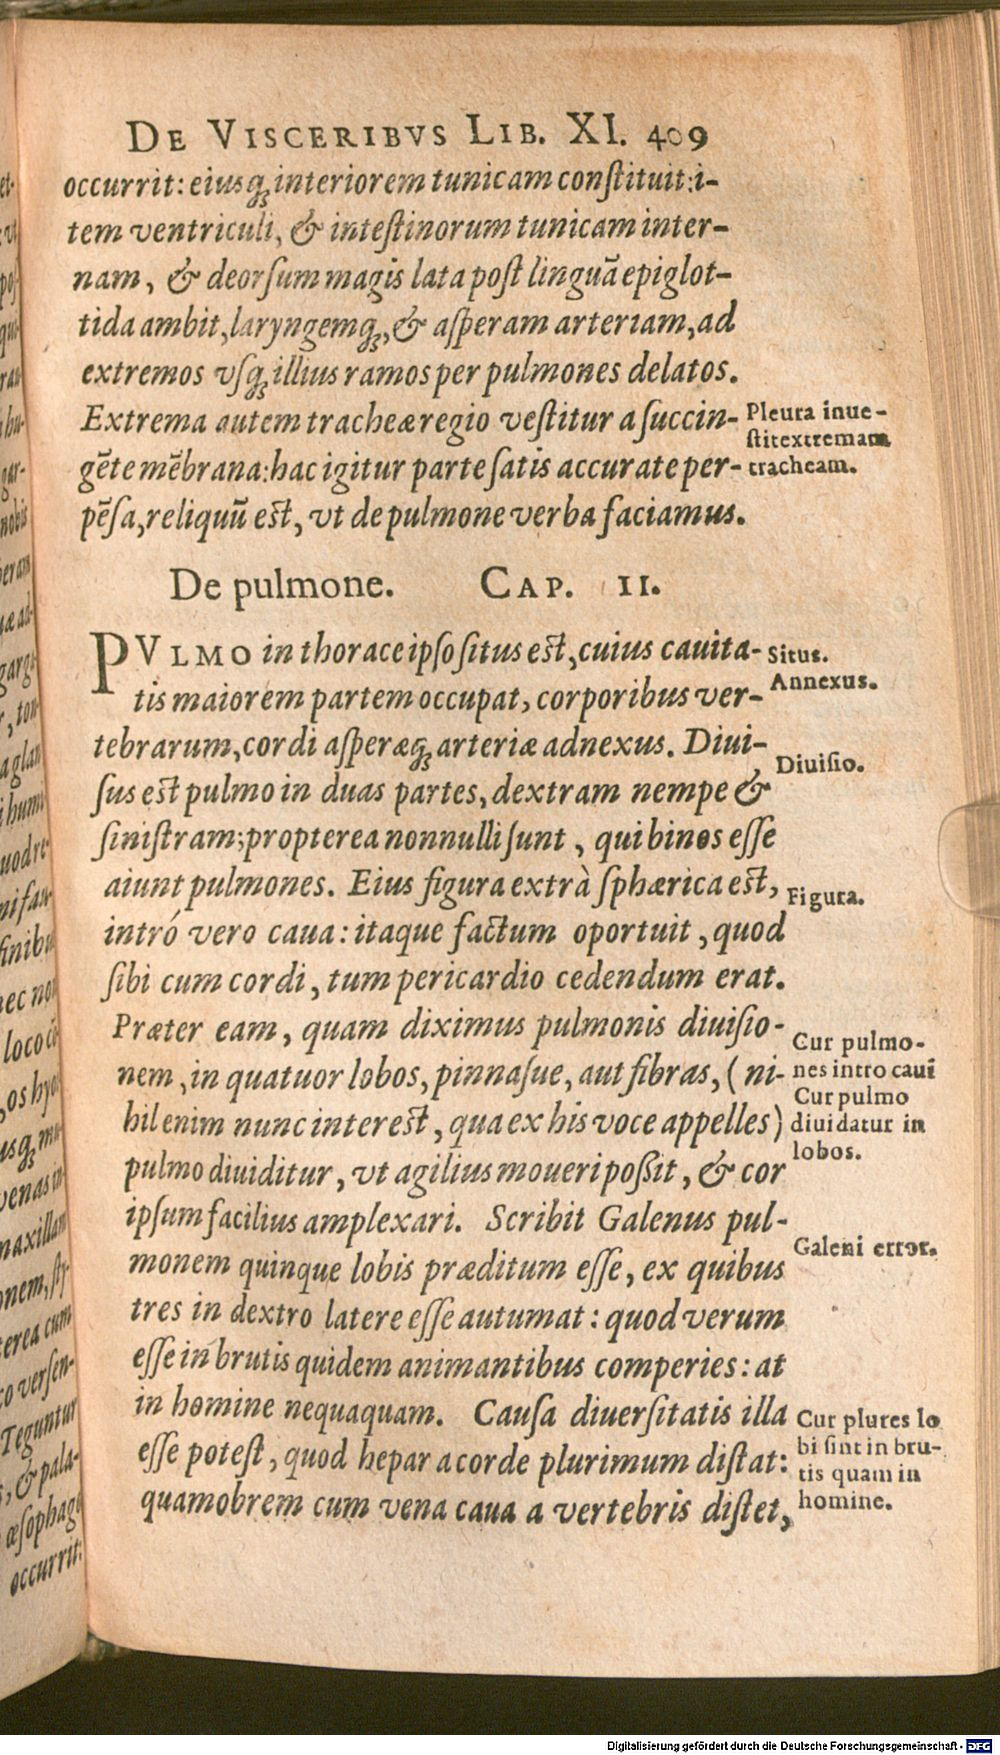 DE VISCERIBVS LIB. XI. 409
occurrit: eiusq́; interiorem tunicam conſtituit: i-
tem ventriculi, & inteſtinorum tunicam inter-
nam, & deorſum magis lata poſt linguā epiglot-
tida ambit, laryngemq́;, & aſperam arteriam, ad
extremos vſq́; illius ramos per pulmones delatos.
Extrema autem tracheæ regio veſtitur a ſuccin-
gēte mēbrana: hac igitur parte ſatis accurate per-
pēſa, reliquū eſt, vt de pulmone verba faciamus.
Pleura inue-
ſtit extremam
tracheam.
De pulmone. CAP. II.
PVLMO in thorace ipſo ſitus eſt, cuius cauita-
tis maiorem partem occupat, corporibus ver-
tebrarum, cordi aſperæq́; arteriæ adnexus. Diui-
ſus eſt pulmo in duas partes, dextram nempe &
ſiniſtram; propterea nonnulli ſunt, qui binos eſſe
aiunt pulmones. Eius figura extrà ſphærica eſt,
intró vero caua: itaque factum oportuit, quod
ſibi cum cordi, tum pericardio cedendum erat.
Præter eam, quam diximus pulmonis diuiſio-
nem, in quatuor lobos, pinnaſue, aut fibras, (ni-
hil enim nunc intereſt, qua ex his voce appelles)
pulmo diuiditur, vt agilius moueri poßit, & cor
ipſum facilius amplexari. Scribit Galenus pul-
monem quinque lobis præditum eſſe, ex quibus
tres in dextro latere eſſe autumat: quod verum
eſſe in brutis quidem animantibus comperies: at
in homine nequaquam. Cauſa diuerſitatis illa
eſſe poteſt, quod hepar a corde plurimum diſtat:
quamobrem cum vena caua a vertebris diſtet,
Situs.
Annexus.
Diuiſio.
Figura.
Cur pulmo-
nes intro caui
Cur pulmo
diuidatur in
lobos.
Galeni error.
Cur plures lo
bi ſint in bru-
tis quam in
homine.
Digitalisierung gefördert durch die Deutsche Forschungsgemeinschaft - DFG